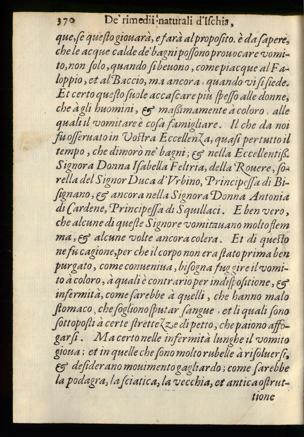 370 De' rimedii naturali d'Ischia,
que, se questo giouarà, e farà al proposito. è da sapere,
che le acque calde de' bagni possono prouocare vomi-
to, non solo, quando si beuono, come piacque al Fa-
loppio, et al Baccio, ma ancora, quando vi si siede.
Et certo questo suole accascar più spesso alle donne,
che à gli huomini, & massimamente à coloro, alle
quali il vomitare è cosa famigliare. Il che da noi
fu osseruato in Vostra Eccellenza, quasi per tutto il
tempo, che dimorò ne' bagni; & nella Eccellentiss.
Signora Donna Isabella Feltria, della Rouere, so-
rella del Signor Duca d'Vrbino, Principessa di Bi-
signano, & ancora nella Signora Donna Antonia
di Cardene, Principessa di Squillaci. E ben vero,
che alcune di queste Signore vomitauano molto flem
ma, & alcune volte ancora colera. Et di questo
ne fu cagione, per che il corpo non era stato prima ben
purgato, come conueniua, bisogna fuggire il vomi-
to à coloro, à quali è contrario per indispositione, &
infermità, come sarebbe à quelli, che hanno malo
stomaco, che sogliono sputar sangue, et li quali sono
sottoposti à certe strettezze di petto, che paiono affo-
garsi. Ma certo nelle infermità lunghe il vomito
gioua; et in quelle che sono molto rubelle à risoluersi,
& desiderano mouimento gagliardo; come sarebbe
la podagra, la sciatica, la vecchia, et antica ostrut-
tione